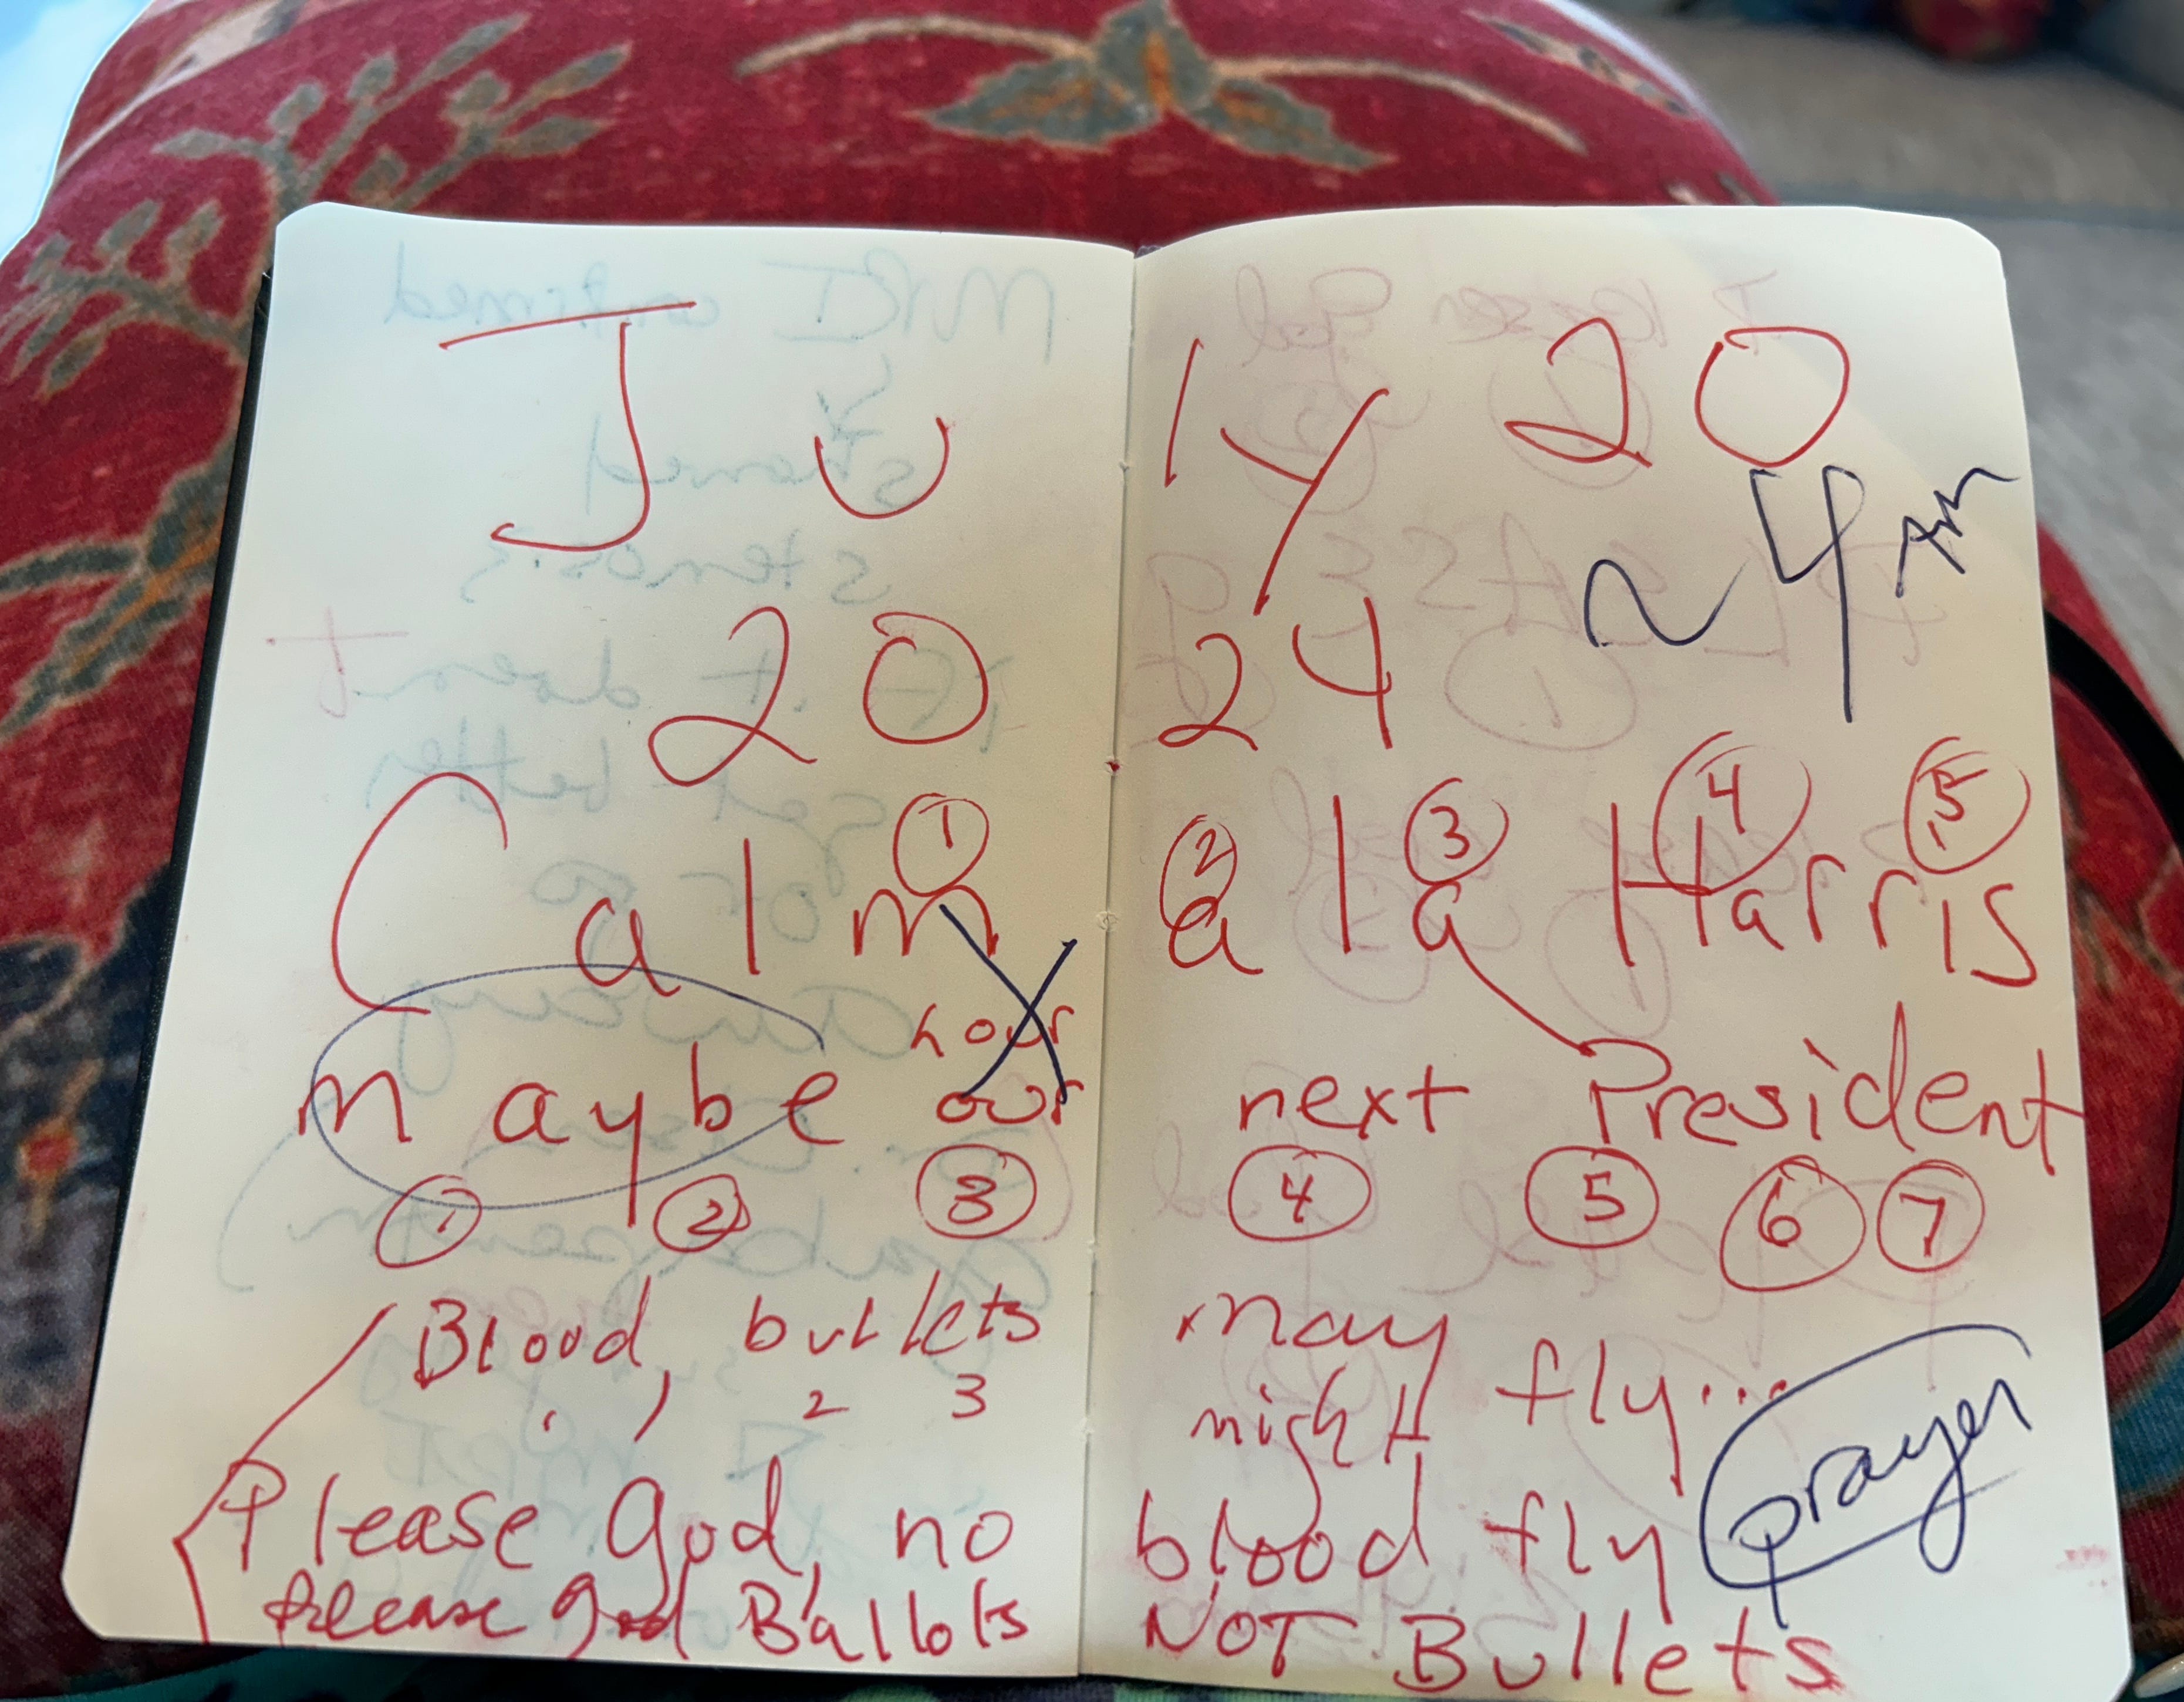 July 20
~4 Am
2024
① ② ③ ④ ⑤
Calmala Harris
hour
maybe our next President
① ② ③ ④ ⑤ ⑥ ⑦
Blood, bullets may fly...
1 2 3 might
Please god, no blood fly
prayer
Please god Ballots NOT Bullets
MRI confirmed
stenosis